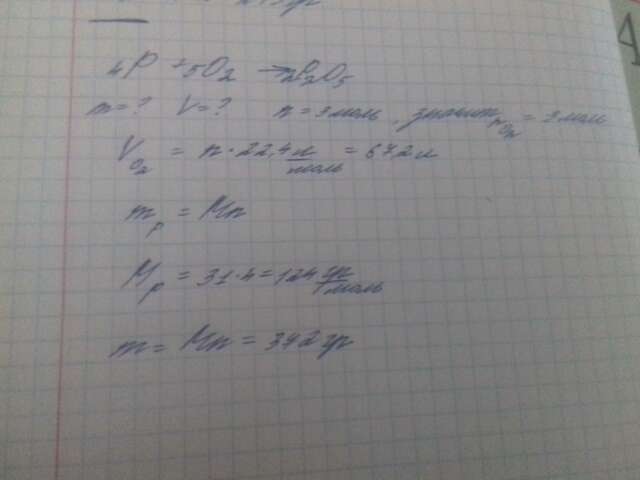 4P + 5O₂ → 2P₂O₅
m = ? V = ? n = 3 моль, значит n_O₂ = 3 моль
V_O₂ = n · 22,4 л/моль = 672 л
m_p = Mn
M_p = 31·4 = 124 гр/моль
m = Mn = 372 гр